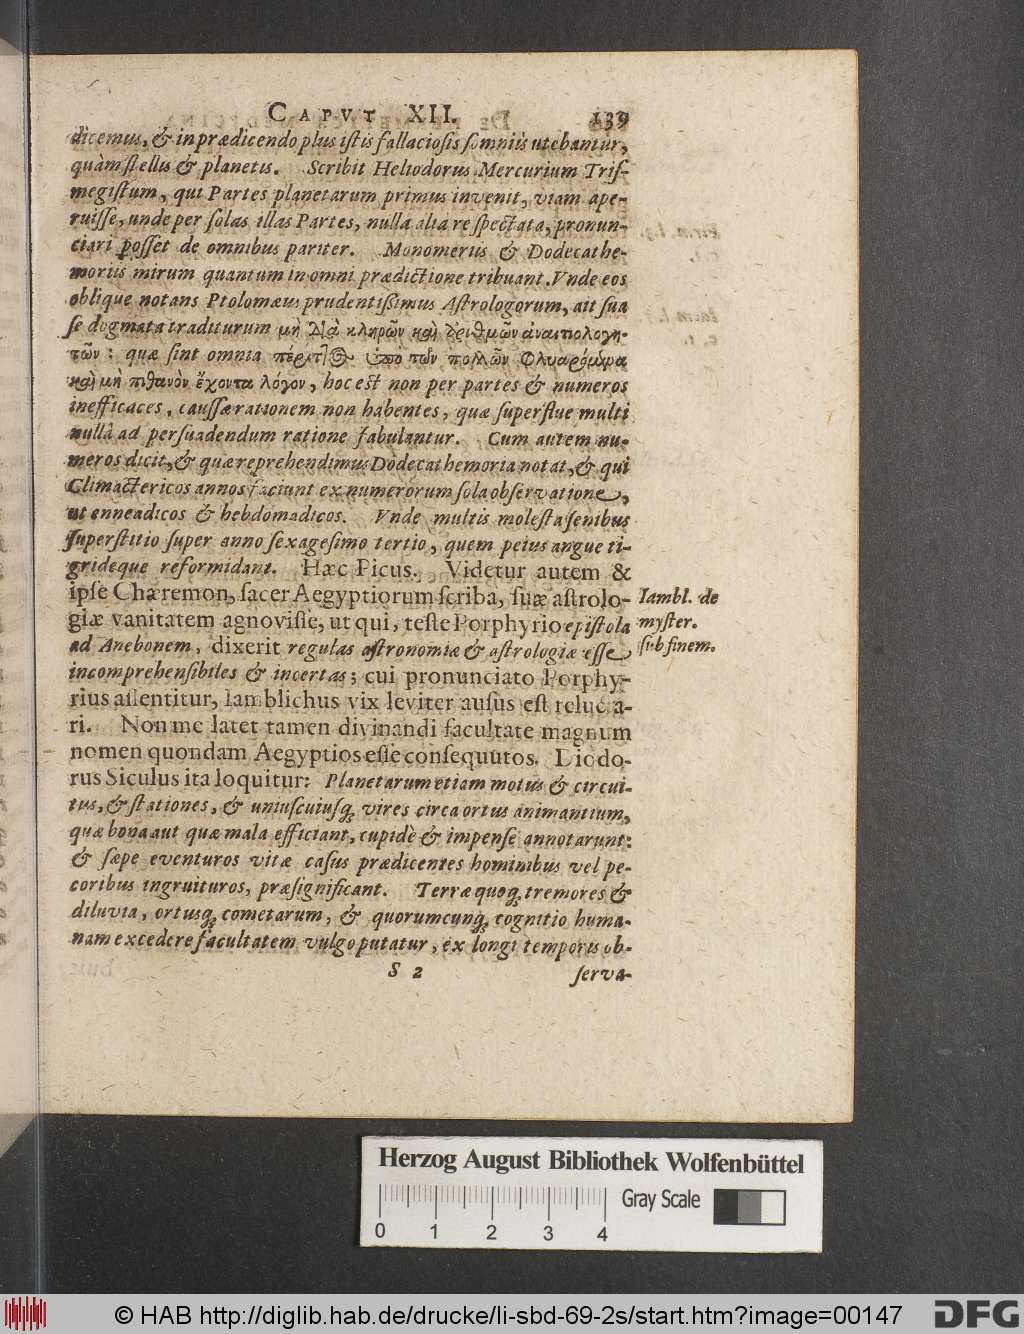 CAPVT XII. 139
dicemus, & in prædicendo plus istis fallaciosis somniis utebantur,
quàm stellis & planetis. Scribit Heliodorus Mercurium Tris-
megistum, qui Partes planetarum primus invenit, viam ape-
ruisse, unde per solas illas Partes, nulla alia re spectata, pronun-
ciari posset de omnibus pariter. Monomeriis & Dodecathe-
moriis mirum quantum in omni prædictione tribuant. Vnde eos
oblique notans Ptolomæus prudentißimus Astrologorum, ait sua
se dogmata traditurum μὴ Διὰ κληρῶν καὶ ἀριθμῶν ἀναιτιολογη-
τῶν: quæ sint omnia ὑπὸ τῶν πολλῶν
καὶ μὴ πιθανὸν ἔχοντα λόγον, hoc est non per partes & numeros
inefficaces, caussæ rationem non habentes, quæ superflue multi
nulla ad persuadendum ratione fabulantur. Cum autem nu-
meros dicit, & quæ reprehendimus Dodecathemoria notat, & qui
Climactericos annos faciunt ex numerorum sola observatione,
ut enneadicos & hebdomadicos. Vnde multis molesta senibus
superstitio super anno sexagesimo tertio, quem peius angue ti-
grideque reformidant. Hæc Picus. Videtur autem &
ipse Chæremon, sacer Aegyptiorum scriba, suæ astrolo-
giæ vanitatem agnovisse, ut qui, teste Porphyrio epistola
ad Anebonem, dixerit regulas astronomiæ & astrologiæ esse
incomprehensibiles & incertas; cui pronunciato Porphy-
rius assentitur, Iamblichus vix leviter ausus est relucta-
ri. Non me latet tamen divinandi facultate magnum
nomen quondam Aegyptios esse consequutos. Diodo-
rus Siculus ita loquitur: Planetarum etiam motus & circui-
tus, & stationes, & uniuscuiusq; vires circa ortus animantium,
quæ bona aut quæ mala efficiant, cupidè & impensè annotarunt:
& sæpe eventuros vitæ casus prædicentes hominibus vel pe-
coribus ingruituros, præsignificant. Terræ quoq; tremores &
diluvia, ortusq; cometarum, & quorumcunq; cognitio huma-
nam excedere facultatem vulgo putatur, ex longi temporis ob-
S 2 serva-
Iambl. de
myster.
sub finem.
Herzog August Bibliothek Wolfenbüttel
Gray Scale
0 1 2 3 4
© HAB http://diglib.hab.de/drucke/li-sbd-69-2s/start.htm?image=00147
DFG